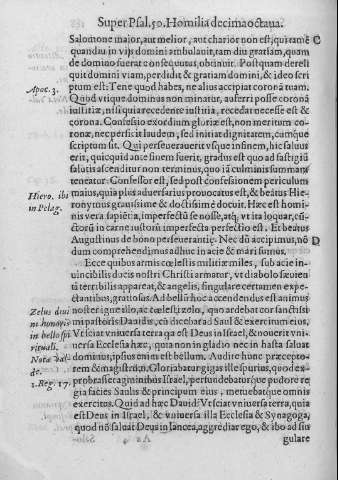 Super Psal. 50. Homilia decimaoctaua.
Salomone maior, aut melior, aut charior non est, qui tamẽ C
quandiu in vijs domini ambulauit, tam diu gratiam, quam
de domino fuerat consecutus, obtinuit. Postquam dereli
quit domini viam, perdidit & gratiam domini, & ideo scri
Apoc. 3.
ptum est: Tene quod habes, ne alius accipiat coronã tuam.
Quod vtique dominus non minatur, auferri posse coronã
iustitiæ, nisi quia recedente iustitia, recedat necesse est &
corona. Confessio exordium gloriæ est, non meritum coro
næ, nec persicit laudem, sed initiat dignitatem, cumque
scriptum sit. Qui perseuerauerit vsque in finem, hic saluus
erit, quicquid ante finem fuerit, gradus est quo ad fastigiũ
salutis ascenditur non terminus, quo iã culminis summa
teneatur. Confessor est, sed post confessionem periculum
maius, quia plus aduersarius prouocatus est, & beatus Hie-
Hiero. ibi
in Pelag.
ronymus grauissime & doctissime docuit. Hæc est homi-
nis vera sapiẽtia, imperfectũ se nosse, atq; vt ita loquar, cũ-
ctorũ in carne iustorũ imperfecta perfectio est. Et beatus
Augustinus de bono perseuerantiæ. Nec dũ accipimus, nõ D
dum comprehendimus adhuc in acie & mari sumus.
Ecce quibus armis cœlestis militiæ miles, sub acie in-
uincibilis ducis nostri Christi armatur, vt diabolo sæuien
ti terribilis appareat, & angelis, singulare certamen expe-
ctantibus, gratiosus. Ad bellũ hoc accendendus est animus
Zelus diui
ni honoris
in bello spi
rituali.
Nota val-
de.
1. Reg. 17.
noster igne illo, ac cœlesti zelo, quo ardebat cor sanctissi
mi pastoris Dauidis, cũ dicebat ad Saul & exercitum eius,
Vt sciat vniuersa terra qa est Deus in Israel, & nouerit vniuersa Ecclesia hæc, quia non in gladio nec in hasta saluat
dominus, ipsius enim est bellum. Audite hunc præcepto-
rem & magistrum. Gloriabatur gigas ille spurius, quod ex-
probrasset agminibus Israel, perfundebaturque pudore re
gia facies Saulis & principum eius, metuebatque omnis
exercitus. Quid ad hæc Dauid? Vt sciat vniuersa terra, quia
est Deus in Israel, & vniuersa illa Ecclesia & Synagoga,
quod nõ saluat Deus in lancea, aggrediar ego, & ibo ad sin
gulare